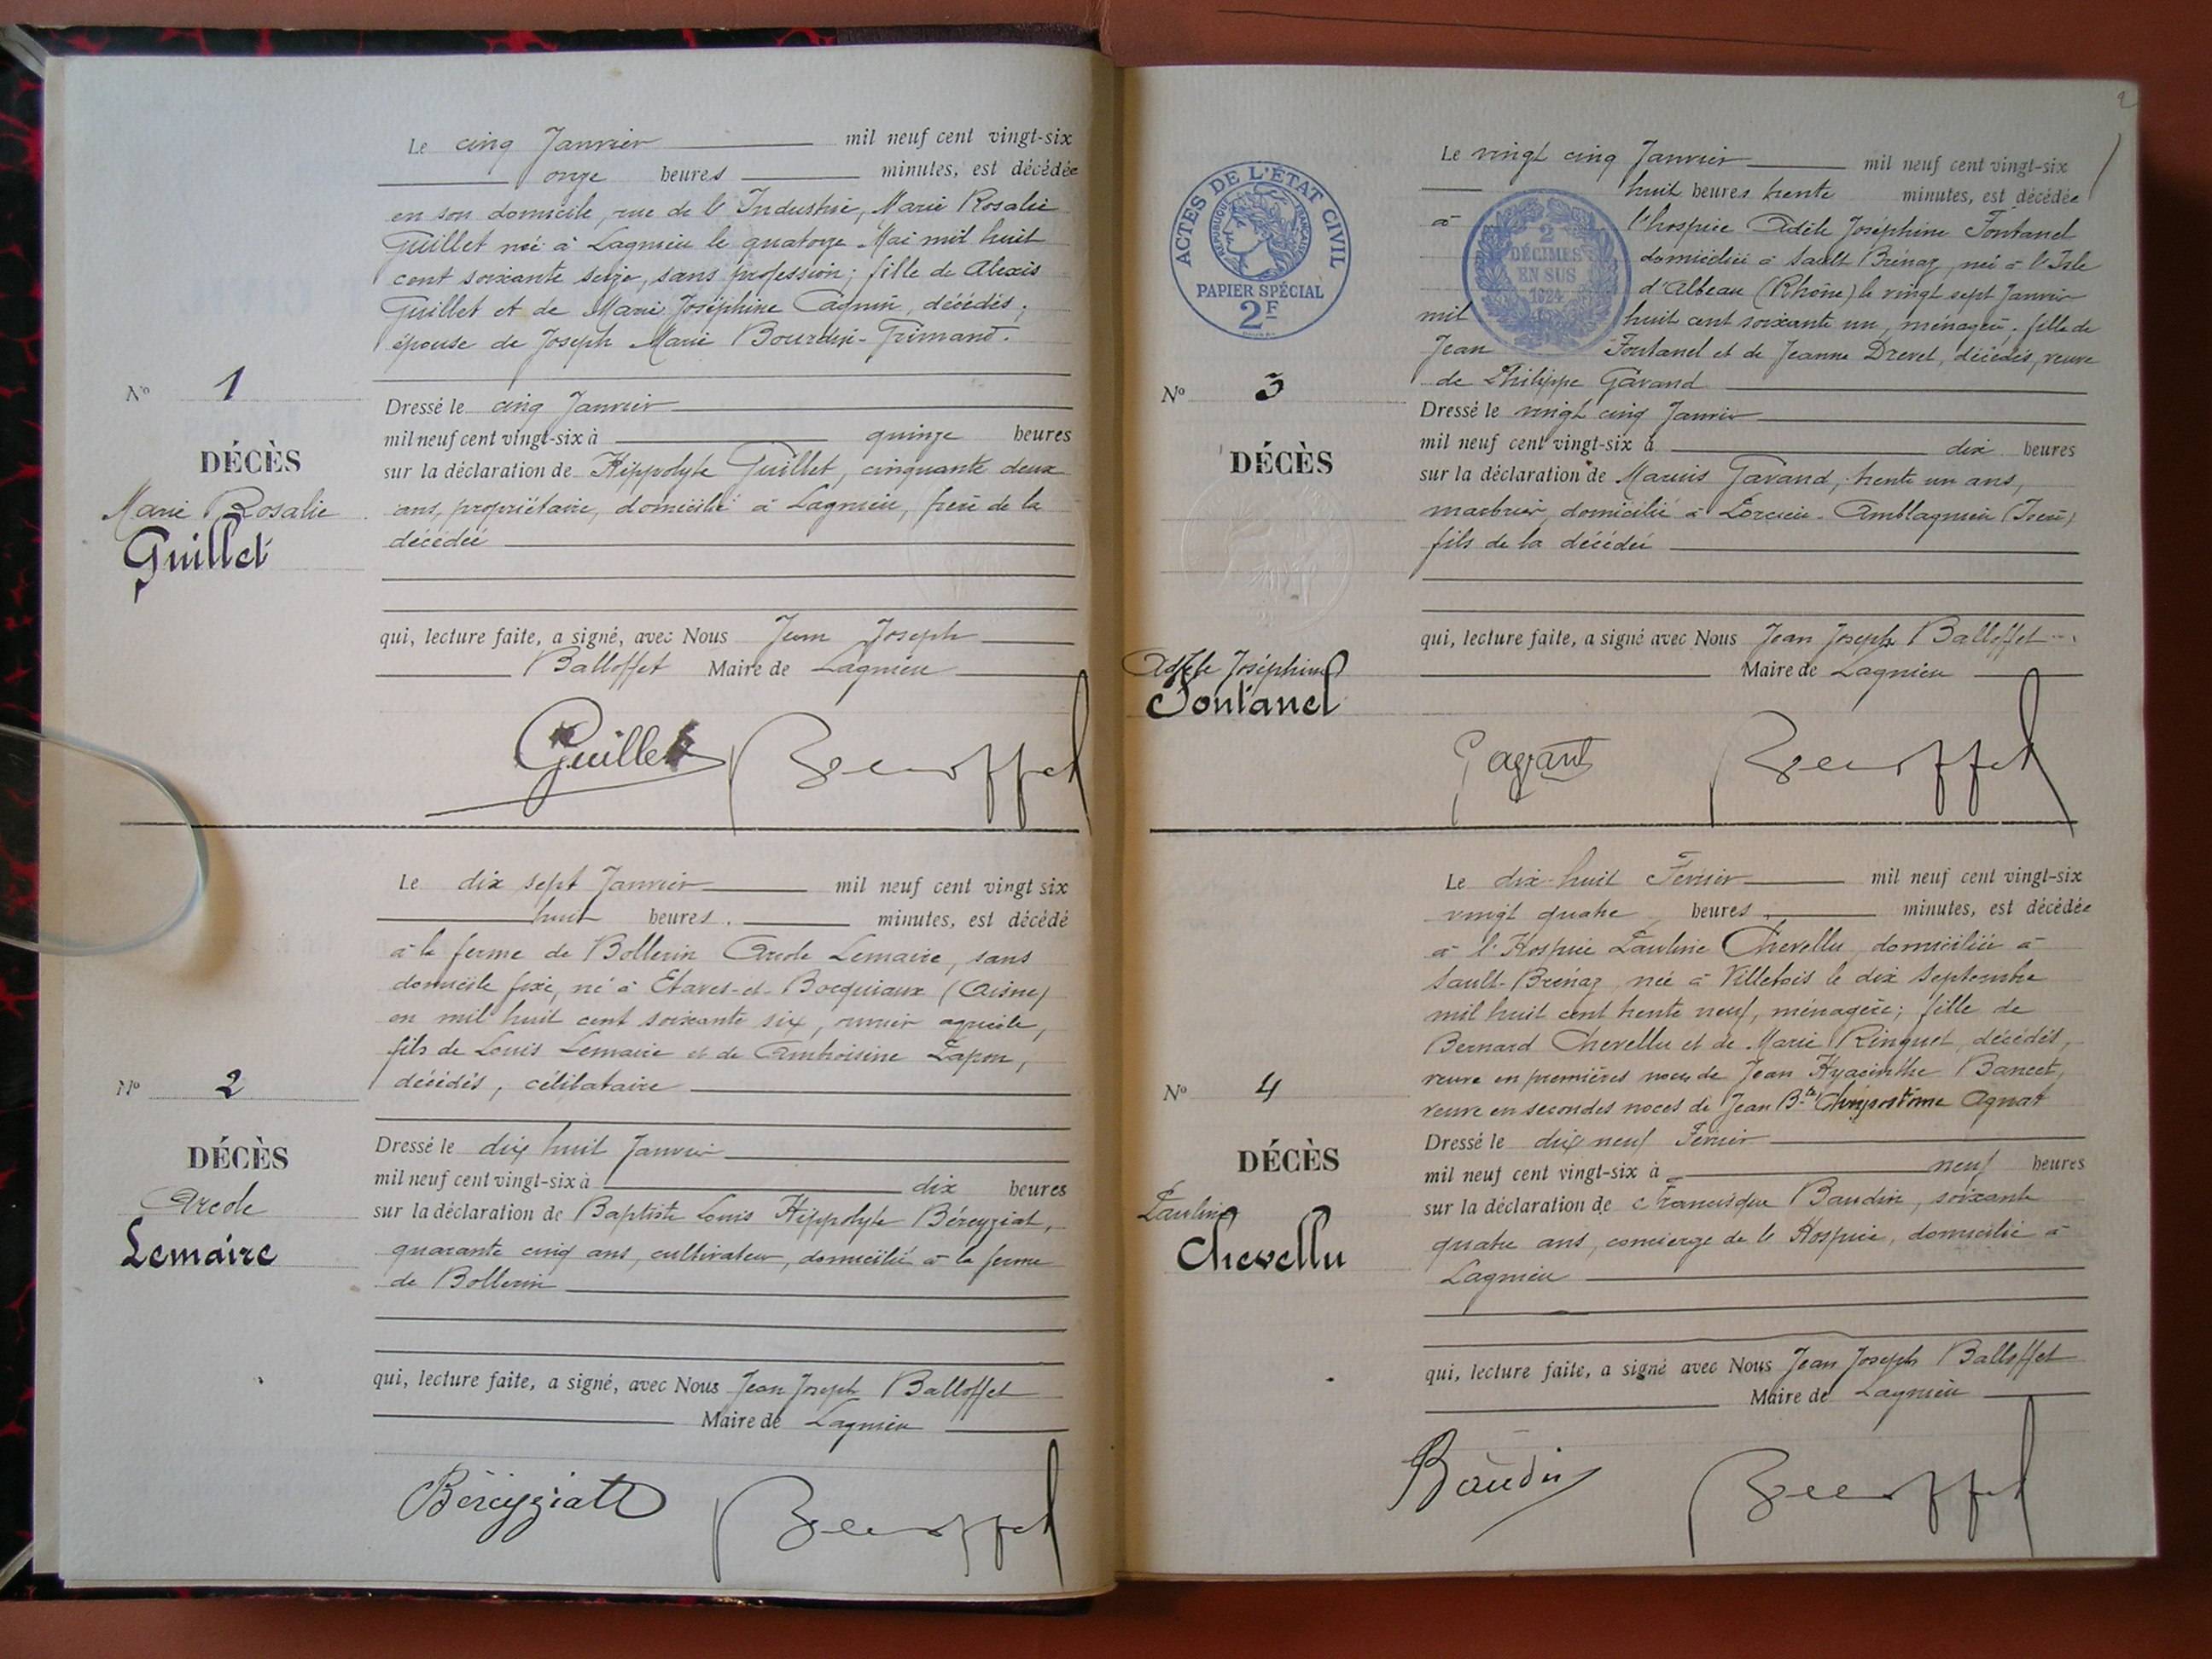 Le cinq Janvier mil neuf cent vingt-six
onze heures minutes, est décédée
en son domicile, rue de l'Industrie, Marie Rosalie
Guillet née à Lagnieu le quatorze Mai mil huit
cent soixante seize, sans profession; fille de Alexis
Guillet et de Marie Joséphine Cagnin, décédés;
épouse de Joseph Marie Bourdin-Grimand.
N° 1
DÉCÈS
Marie Rosalie
Guillet
Dressé le cinq Janvier
mil neuf cent vingt-six à quinze heures
sur la déclaration de Hippolyte Guillet, cinquante deux
ans, propriétaire, domicilié à Lagnieu, frère de la
décédée
qui, lecture faite, a signé, avec Nous Jean Joseph
Balloffet Maire de Lagnieu
Guillet
Le dix sept Janvier mil neuf cent vingt six
huit heures minutes, est décédé
à la ferme de Bollerin Arcole Lemaire, sans
domicile fixe, né à Etaves-et-Bocquiaux (Aisne)
en mil huit cent soixante six, ouvrier agricole,
fils de Louis Lemaire et de Ambroisine Lapon,
décédés, célibataire
N° 2
DÉCÈS
Arcole
Lemaire
Dressé le dix huit Janvier
mil neuf cent vingt-six à dix heures
sur la déclaration de Baptiste Louis Hippolyte Béreyziat,
quarante cinq ans, cultivateur, domicilié à la ferme
de Bollerin
qui, lecture faite, a signé, avec Nous Jean Joseph Balloffet
Maire de Lagnieu
Béreyziat
2
ACTES DE L'ÉTAT CIVIL
RÉPUBLIQUE FRANÇAISE
PAPIER SPÉCIAL
2F
2
DÉCIMES
EN SUS
1924
Le vingt cinq Janvier mil neuf cent vingt-six
huit heures trente minutes, est décédée
à l'hospice Adèle Joséphine Fontanel
domiciliée à Sault Brénaz, née à l'Isle
d'Albeau (Rhône) le vingt sept Janvier
mil huit cent soixante un, ménagère; fille de
Jean Fontanel et de Jeanne Drevet, décédés, veuve
de Philippe Gavand
N° 3
DÉCÈS
Adèle Joséphine
Fontanel
Dressé le vingt cinq Janvier
mil neuf cent vingt-six à dix heures
sur la déclaration de Marius Gavand, trente un ans,
marbrier, domicilié à Amblagnieu (Isère)
fils de la décédée
qui, lecture faite, a signé avec Nous Jean Joseph Balloffet
Maire de Lagnieu
Gavand
Le dix-huit Février mil neuf cent vingt-six
vingt quatre heures, minutes, est décédée
à l'Hospice Pauline Chevellu, domiciliée à
Sault-Brénaz, née à Villebois le dix Septembre
mil huit cent trente neuf, ménagère; fille de
Bernard Chevellu et de Marie Ringuet, décédés,
veuve en premières noces de Jean Hyacinthe Bancet,
veuve en secondes noces de Jean Bte Chrysostôme Agnat
N° 4
DÉCÈS
Pauline
Chevellu
Dressé le dix neuf Février
mil neuf cent vingt-six à neuf heures
sur la déclaration de Francisque Baudin, soixante
quatre ans, concierge de l'Hospice, domicilié à
Lagnieu
qui, lecture faite, a signé avec Nous Jean Joseph Balloffet
Maire de Lagnieu
Baudin